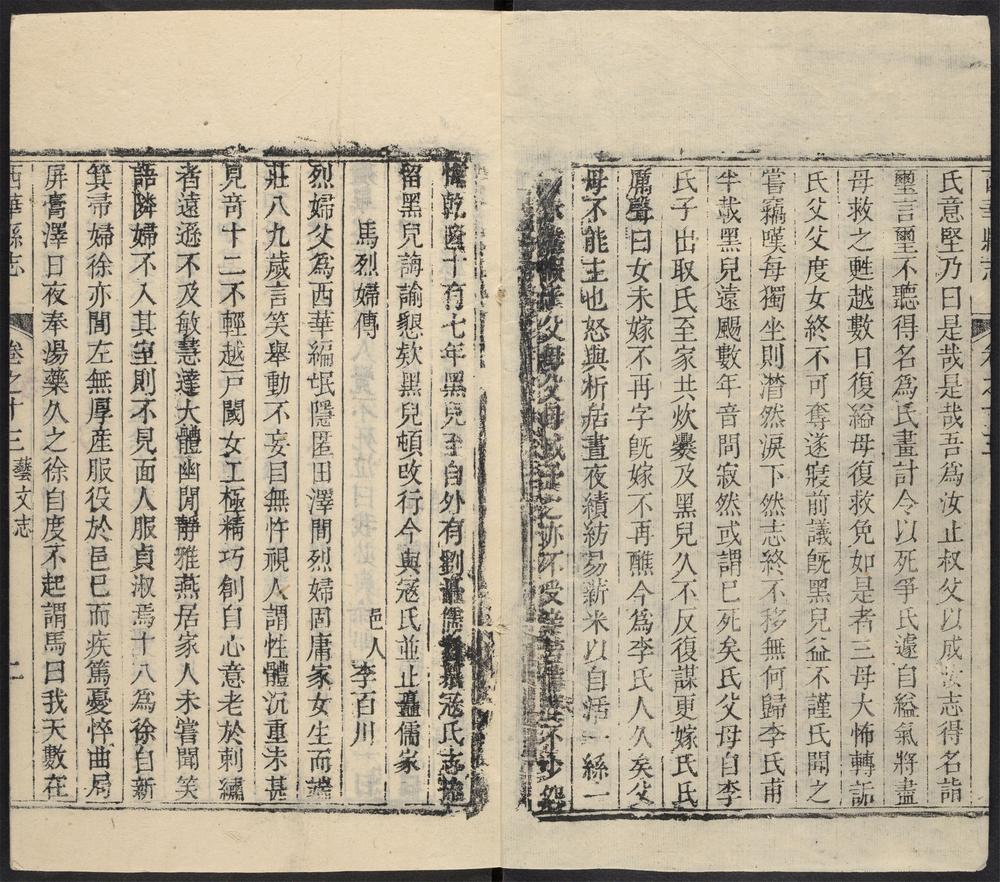 氏意堅乃曰是哉是哉吾爲汝止叔父以成汝志得名詣
璽言璽不聽得名爲氏畫計令以死爭氏遽自縊氣將盡
母救之甦越數日復縊母復救免如是者三母大怖轉詬
氏父父度女終不可奪遂寢前議旣黑兒益不謹氏聞之
嘗竊嘆每獨坐則潸然淚下然志終不移無何歸李氏甫
半載黑兒遠颺數年音問寂然或謂已死矣氏父母自李
氏子出取氏至家共炊爨及黑兒久不反復謀更嫁氏氏
厲聲曰女未嫁不再字旣嫁不再醮今爲李氏人久矣父
母不能主也怒與析居晝夜績紡易薪米以自活一絲一
父母及母
乾隆十有七年黑兒至自外有劉矗儒者義寇氏志
留黑兒誨諭懇欵黑兒頓改行今與寇氏並止矗儒家
馬烈婦傳
邑人李百川
烈婦父爲西華編氓隱匿田澤間烈婦固庸家女生而端
莊八九歲言笑舉動不妄目無忤視人謂性體沉重未甚
見奇十二不輕越戶閾女工極精巧創自心意老於刺繡
者遠遜不及敏慧達大體幽閒靜雅燕居家人未嘗聞笑
語隣婦不入其室則不見面人服貞淑焉十八爲徐自新
箕帚婦徐亦閭左無厚產服役於邑已而疾篤憂悴曲局
屏膏澤日夜奉湯藥久之徐自度不起謂馬曰我天數在
西華縣志
卷之十三
藝文志